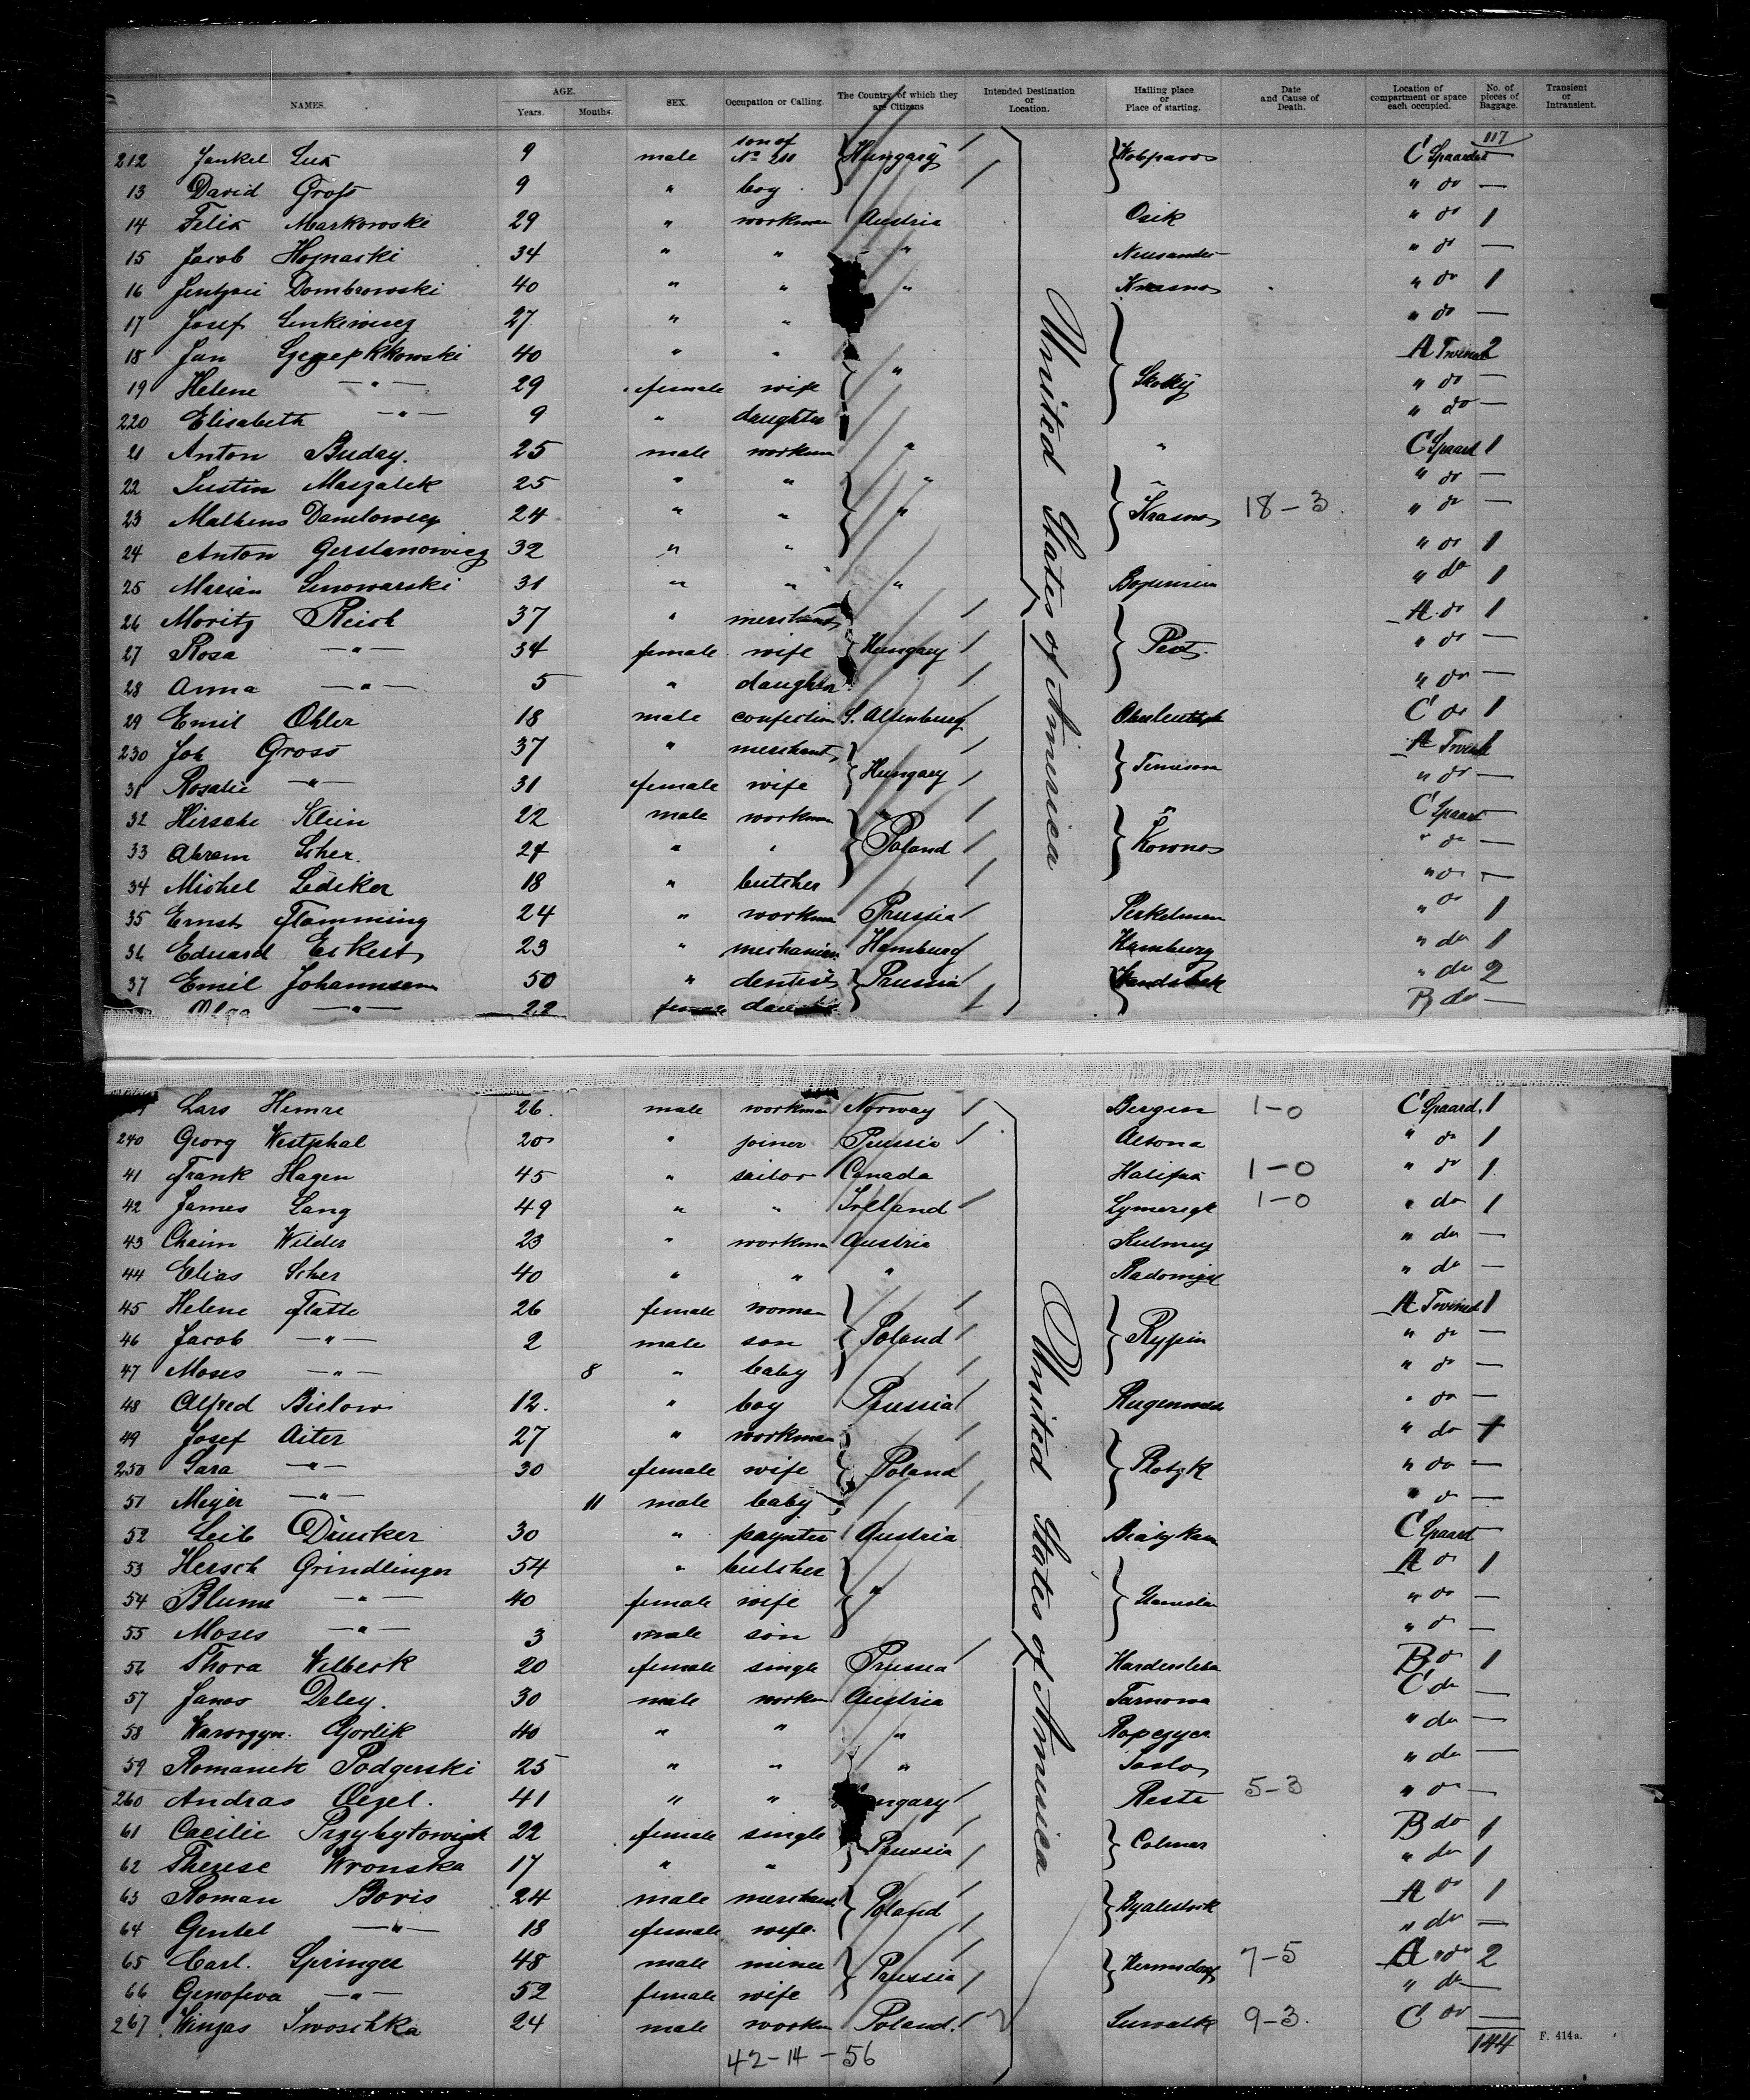 NAMES. AGE. Years. Months. SEX. Occupation or Calling. The Country of which they are Citizens Intended Destination or Location. Hailing place or Place of starting. Date and Cause of Death. Location of compartment or space each occupied. No. of pieces of Baggage. Transient or Intransient.
117
212 Jankel Lux 9 male son of No 211 Hungary C Spaarder —
13 David Gross 9 " boy " do —
14 Felix Markowski 29 " workman Austria Osik " do 1
15 Jacob Hojnaski 34 " " " Neusander " do —
16 Dombrowski 40 " " " Krasno " do 1
17 Josef 27 " " " do —
18 Jan 40 " " " A 2
19 Helene —"— 29 female wife Skolky " do —
220 Elisabeth —"— 9 " daughter " do —
21 Anton Buday. 25 male workman " " C Spaard 1
22 Maszalek 25 " " " " " do —
23 24 " " " Krasno 18-3. " do —
24 Anton Gerstanowicz 32 " " " do 1
25 Marian 31 " " " " do 1
26 Moritz Reich 37 " merchant A do 1
27 Rosa —"— 34 female wife Hungary Pest. " do —
28 Anna —"— 5 " daughter " do —
29 Emil Ohler 18 male S. Altenburg C do 1
230 Joh Gross 37 " merchant A 1
31 Rosalie —"— 31 female wife Hungary " do —
32 Hirsche Klein 22 male workman " C Spaard —
33 Abram Scher. 24 " " Poland Kowno " do —
34 Michel Lediker 18 " butcher " do —
35 Ernst Flamming 24 " workman Prussia " do 1
36 Eduard Eckert 23 " Hamburg Hamburg " do 1
37 Emil Johannsen 50 " dentist Prussia " do 2
Olga —"— 22 female B do —
United States of America
Lars Hemre 26. male workman Norway Bergen 1-0 C Spaard. 1
240 Georg Westphal 20 " joiner Prussia Altona " do 1
41 Frank Hagen 45 " sailor Canada Halifax 1-0 " do 1
42 James Lang 49 " " Irelland 1-0 " do 1
43 Chaim Wilder 23 " workman Austria " do —
44 Elias Scher 40 " " " " do —
45 Helene Flatte 26 female woman A 1
46 Jacob —"— 2 male son Poland Rypin " do —
47 Moses —"— 8 " baby " do —
48 Alfred Bielow 12. " boy Prussia " do —
49 Josef Aiter 27 " workman " do 1
250 Sara —"— 30 female wife Poland Plotzk " do —
51 Mejer —"— 11 male baby " do —
52 Leib Drucker 30 " paynter Austria C Spaard —
53 Hersch Grindlinger 54 " butcher A do 1
54 Blume —"— 40 female wife " " do —
55 Moses —"— 3 male son " do —
56 Thora Wilbeck 20 female single Prussia B do 1
57 Janos Deley. 30 male workm Austria Tarnowa C do —
58 Gorlik 40 " " " " do —
59 Romanek Podgerski 25 " " " " do —
260 Andras Cezel. 41 " " ngary Reste 5-3 " do —
61 Caecilie 22 female single B do 1
62 Therese Wronska 17 " " Prussia Colmar " do 1
63 Roman Boris 24 male merchant A do 1
64 Gentel —"— 18 female wife Poland Byalistock " do —
65 Carl. Springer 48 male miner 7-5 A do 2
66 Genofeva —"— 52 female wife Prussia Hermsdorf " do —
267 Winzas Iwoschka 24 male workm Poland. Suwalk 9-3. C do —
United States of America
42-14-56 144
F. 414a.